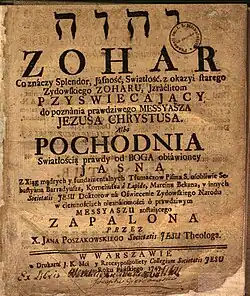 יהוה
ZOHAR
Co znaczy Splendor, Jásność, Swiatłość, z okazyi stárego
Zydowskiego ZOHARU, Jzráelitom
PRZYSWIECAJĄCY
do poznánia prawdziwego MESSYASZA
JEZUSA CHRYSTUSA.
Albo
POCHODNIA
Swiatłością prawdy od BOGA obiáwioney
JASNA
Z Xiąg mądrych y fundámentalnych Tłumaczow Pismá S. osobliwie Se-
bastyana Barradyusza, Korneliusza à Lapide, Marcina Bekana, y innych
Societatis JESU Doktorow ná Oświecenie Zydowskiego Narodu
w ciemnościách niewiádomości o prawdziwym
MESSYASZU zostáiącego
ZAPALONA
PRZEZ
X. JANA POSZAKOWSKIEGO Societatis JESU Theologa.
W WARSZAWIE
w Drukárni J. K. Mci y Rzeczypospolitey Collegium Societatis JESU
Roku Páńskiego
Ex Libris